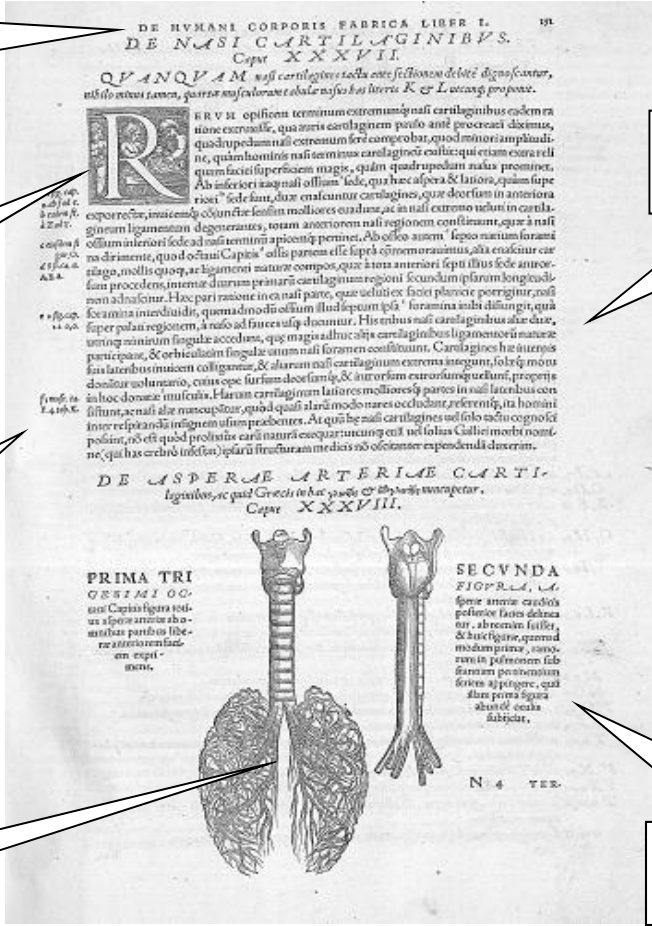 DE HVMANI CORPORIS FABRICA LIBER I. 151
DE NASI CARTILAGINIBVS.
Caput XXXVII.
QVANQVAM nasi cartilagines tactu ante sectionem debitè dignoscantur,
nihilo minus tamen, quartæ musculorum tabulæ nasus has literis K & L utcunq; proponit.
RERVM opifex in terminum extremumq; nasi cartilaginibus eadem ra
tione extruxisse, qua auris cartilaginem paulo antè procreari diximus,
quadrupedum nasi extremum ferè comprobat, quod minori amplitudi-
ne, quàm hominis nasi terminus cartilagineus existit: qui etiam extra reli
quam faciei superficiem magis, quàm quadrupedum nasus prominet.
Ab inferiori itaq; nasi ossium sede, qua hæc aspera & latiora, quàm supe
riori sede sunt, duæ enascuntur cartilagines, quæ deorsum in anteriora
exporrectæ, inuicemq; cōiunctæ sensim molliores euadunt, ac in nasi extremo ueluti in cartila-
gineum ligamentum degenerantes, totam anteriorem nasi regionem constituunt, quæ à nasi
ossium inferiori sede ad nasi terminū apicemq; pertinet. Ab osseo autem septo narium forami
na dirimente, quod octaui Capitis ossis partem esse suprà cōmemorauimus, alia enascitur car
tilago, mollis quoq;, ac ligamenti naturæ compos, quæ à tota anteriori septi illius sede antror-
sum procedens, internæ duarum primarū cartilaginum regioni secundum ipsarum longitudi-
nem adnascitur. Hæc pari ratione in ea nasi parte, quæ ueluti ex faciei planicie porrigitur, nasi
foramina interdiuidit, quemadmodū ossium illud septum ipsa foramina inibi disiungit, quà
super palati regionem, à naso ad fauces usq; ducuntur. His tribus nasi cartilaginibus aliæ duæ,
utrinq; nimirum singulæ accedunt, quæ magis adhuc alijs cartilaginibus ligamentorū naturæ
participant, & orbiculatim singulæ unum nasi foramen constituunt. Cartilagines hæ internis
suis lateribus inuicem colligantur, & aliarum nasi cartilaginum extrema integunt, solæq; motu
donātur uoluntario, cuius ope sursum deorsumq;, & introrsum extrorsumq; uellunt, proprijs
in hoc donatæ musculis. Harum cartilaginum latiores mollioresq; partes in nasi lateribus con
sistunt, ac nasi alæ nuncupātur, quòd quasi alarū modo nares occludant, reserentq;, ita homini
inter respirandū insignem usum præbentes. At quū hæ nasi cartilagines uel solo tactu cognosci
possint, nō est quòd prolixius earū naturā exequar: utcunq; etiā uel solius Gallici morbi nomi-
ne (qui has crebrò infestat) ipsarū structuram medicis nō oscitanter expendendā duxerim.
DE ASPERÆ ARTERIÆ CARTI-
laginibus, ac quid Græcis in hac & nuncupetur.
Caput XXXVIII.
PRIMA TRI
GESIMI OC-
taui Capitis figura toti-
us asperæ arteriæ ab o-
mnibus partibus libe-
ræ anteriorem faci-
em expri-
mens.
SECVNDA
FIGVRA, A-
speræ arteriæ caudicis
posterior facies delinea
tur, ab re enim fuisset,
& huic figuræ, quemad
modum primæ, ramo-
rum in pulmonem sub
stantiam pertinentium
seriem appingere, quū
illam prima figura
abundè oculis
subijciat.
N 4 TER-